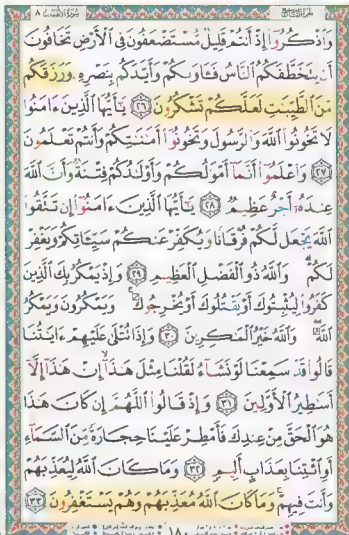 سورة الأنفال ٨
وَٱذْكُرُوٓا۟ إِذْ أَنتُمْ قَلِيلٌ مُّسْتَضْعَفُونَ فِى ٱلْأَرْضِ تَخَافُونَ
أَن يَتَخَطَّفَكُمُ ٱلنَّاسُ فَـَٔاوَىٰكُمْ وَأَيَّدَكُم بِنَصْرِهِۦ وَرَزَقَكُم
مِّنَ ٱلطَّيِّبَـٰتِ لَعَلَّكُمْ تَشْكُرُونَ ٢٦ يَـٰٓأَيُّهَا ٱلَّذِينَ ءَامَنُوا۟
لَا تَخُونُوا۟ ٱللَّهَ وَٱلرَّسُولَ وَتَخُونُوٓا۟ أَمَـٰنَـٰتِكُمْ وَأَنتُمْ تَعْلَمُونَ
٢٧ وَٱعْلَمُوٓا۟ أَنَّمَآ أَمْوَٰلُكُمْ وَأَوْلَـٰدُكُمْ فِتْنَةٌ وَأَنَّ ٱللَّهَ
عِندَهُۥٓ أَجْرٌ عَظِيمٌ ٢٨ يَـٰٓأَيُّهَا ٱلَّذِينَ ءَامَنُوٓا۟ إِن تَتَّقُوا۟
ٱللَّهَ يَجْعَل لَّكُمْ فُرْقَانًا وَيُكَفِّرْ عَنكُمْ سَيِّـَٔاتِكُمْ وَيَغْفِرْ
لَكُمْ وَٱللَّهُ ذُو ٱلْفَضْلِ ٱلْعَظِيمِ ٢٩ وَإِذْ يَمْكُرُ بِكَ ٱلَّذِينَ
كَفَرُوا۟ لِيُثْبِتُوكَ أَوْ يَقْتُلُوكَ أَوْ يُخْرِجُوكَ وَيَمْكُرُونَ وَيَمْكُرُ
ٱللَّهُ وَٱللَّهُ خَيْرُ ٱلْمَـٰكِرِينَ ٣٠ وَإِذَا تُتْلَىٰ عَلَيْهِمْ ءَايَـٰتُنَا
قَالُوا۟ قَدْ سَمِعْنَا لَوْ نَشَآءُ لَقُلْنَا مِثْلَ هَـٰذَآ إِنْ هَـٰذَآ إِلَّآ
أَسَـٰطِيرُ ٱلْأَوَّلِينَ ٣١ وَإِذْ قَالُوا۟ ٱللَّهُمَّ إِن كَانَ هَـٰذَا
هُوَ ٱلْحَقَّ مِنْ عِندِكَ فَأَمْطِرْ عَلَيْنَا حِجَارَةً مِّنَ ٱلسَّمَآءِ
أَوِ ٱئْتِنَا بِعَذَابٍ أَلِيمٍ ٣٢ وَمَا كَانَ ٱللَّهُ لِيُعَذِّبَهُمْ
وَأَنتَ فِيهِمْ وَمَا كَانَ ٱللَّهُ مُعَذِّبَهُمْ وَهُمْ يَسْتَغْفِرُونَ ٣٣
١٨٠